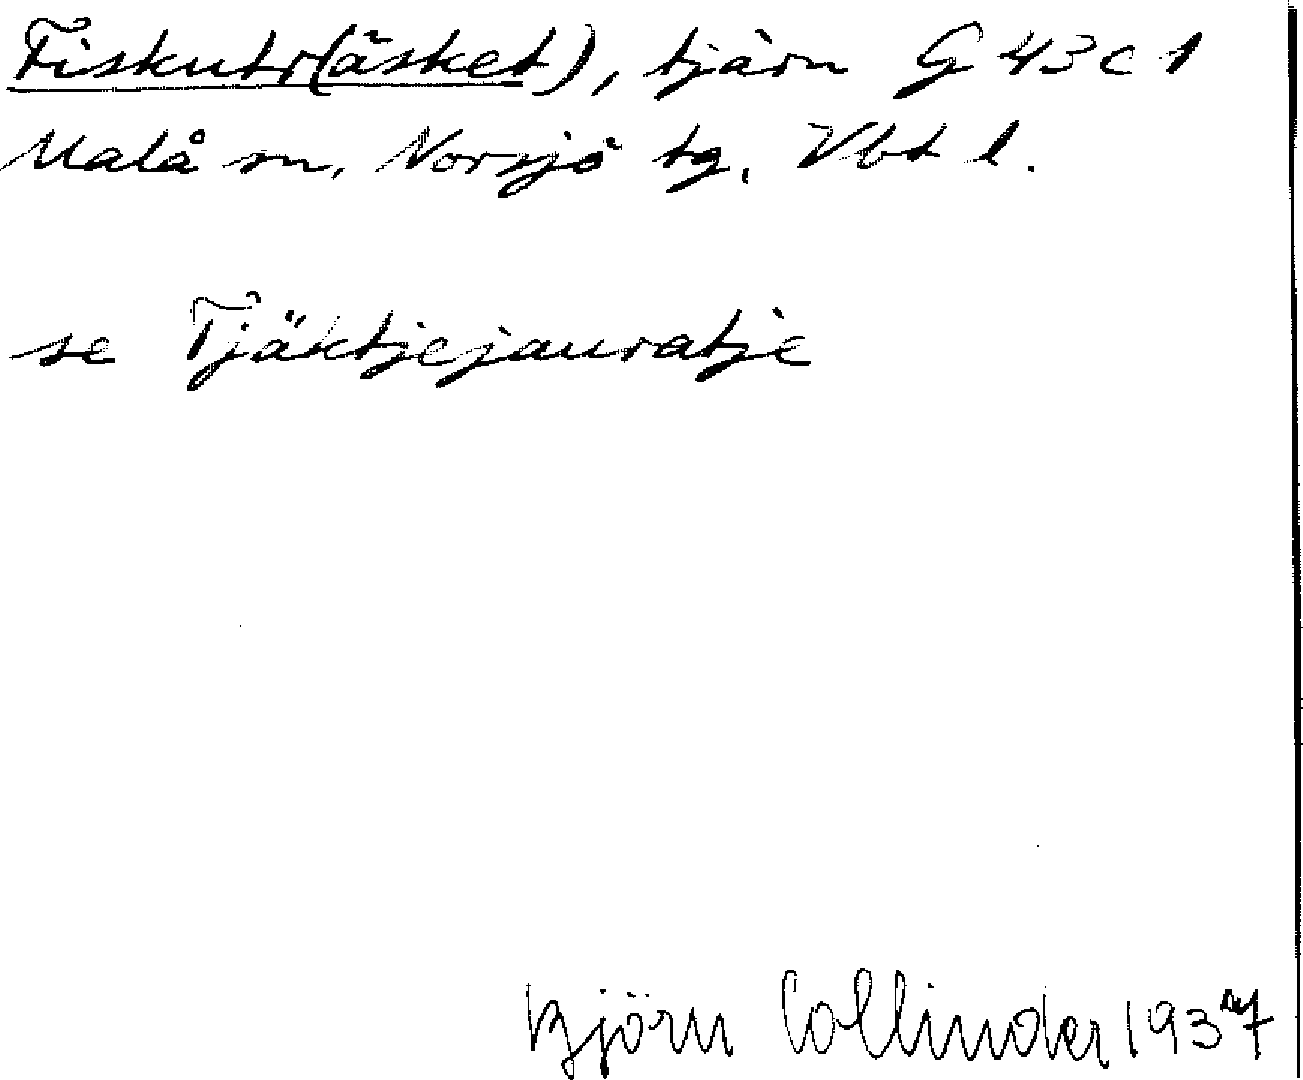 Fiskutr(äsket), tjärn G 43 c 1
Malå sn, Norsjö tg, Vbt l.
se Tjäktjejauratje
Björn Collinder 1937